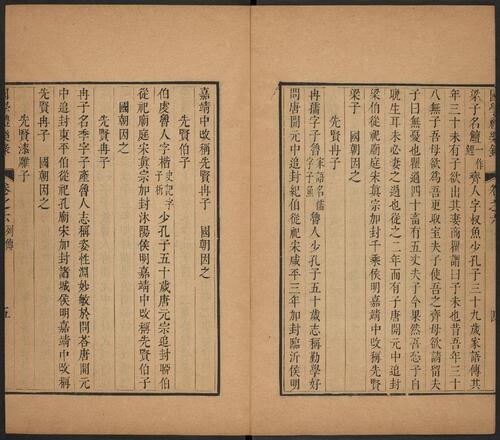 梁子名鱣一作鯉齊人字叔魚少孔子三十九歲家語傳其
年三十未有子欲出其妻商瞿謂曰子未也昔吾年三十
八無子吾母欲爲吾更取室夫子使吾之齊母欲請留夫
子曰無憂也瞿過四十當有五丈夫子今果然吾恐子自
晚生耳未必妻之過也從之二年而有子唐開元中追封
梁伯從祀廟庭宋真宗加封千乘侯明嘉靖中改稱先賢
梁子 國朝因之
先賢冉子
冉孺字子魯家語名儒字子魚魯人少孔子五十歲志稱勤學好
問唐開元中追封紀伯從祀宋咸平三年加封臨沂侯明
嘉靖中改稱先賢冉子 國朝因之
先賢伯子
伯虔魯人字楷史記字子析少孔子五十歲唐元宗追封聊伯
從祀廟庭宋真宗加封沐陽侯明嘉靖中改稱先賢伯子
國朝因之
先賢冉子
冉子名季字子產魯人志稱姿性淵妙敏於問荅唐開元
中追封東平伯從祀孔廟宋加封諸城侯明嘉靖中改稱
先賢冉子 國朝因之
先賢漆雕子
卷之六 列傳 五